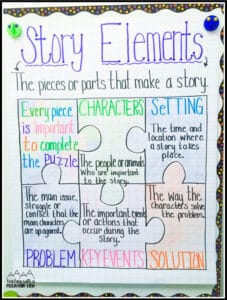 Story Elements
The pieces or parts that make a story.
Every piece
is important
to complete
the Puzzle
CHARACTERS
The people or animals
who are important
to the story.
SETTING
The time and
location where
a story takes
place.
The main issue,
struggle or
conflict that the
main characters
are up against.
PROBLEM
The important events
or actions that
occur during the
Story.
KEY EVENTS
The way the
characters solve
the problem.
SOLUTION
teaching with a
MOUNTAIN VIEW